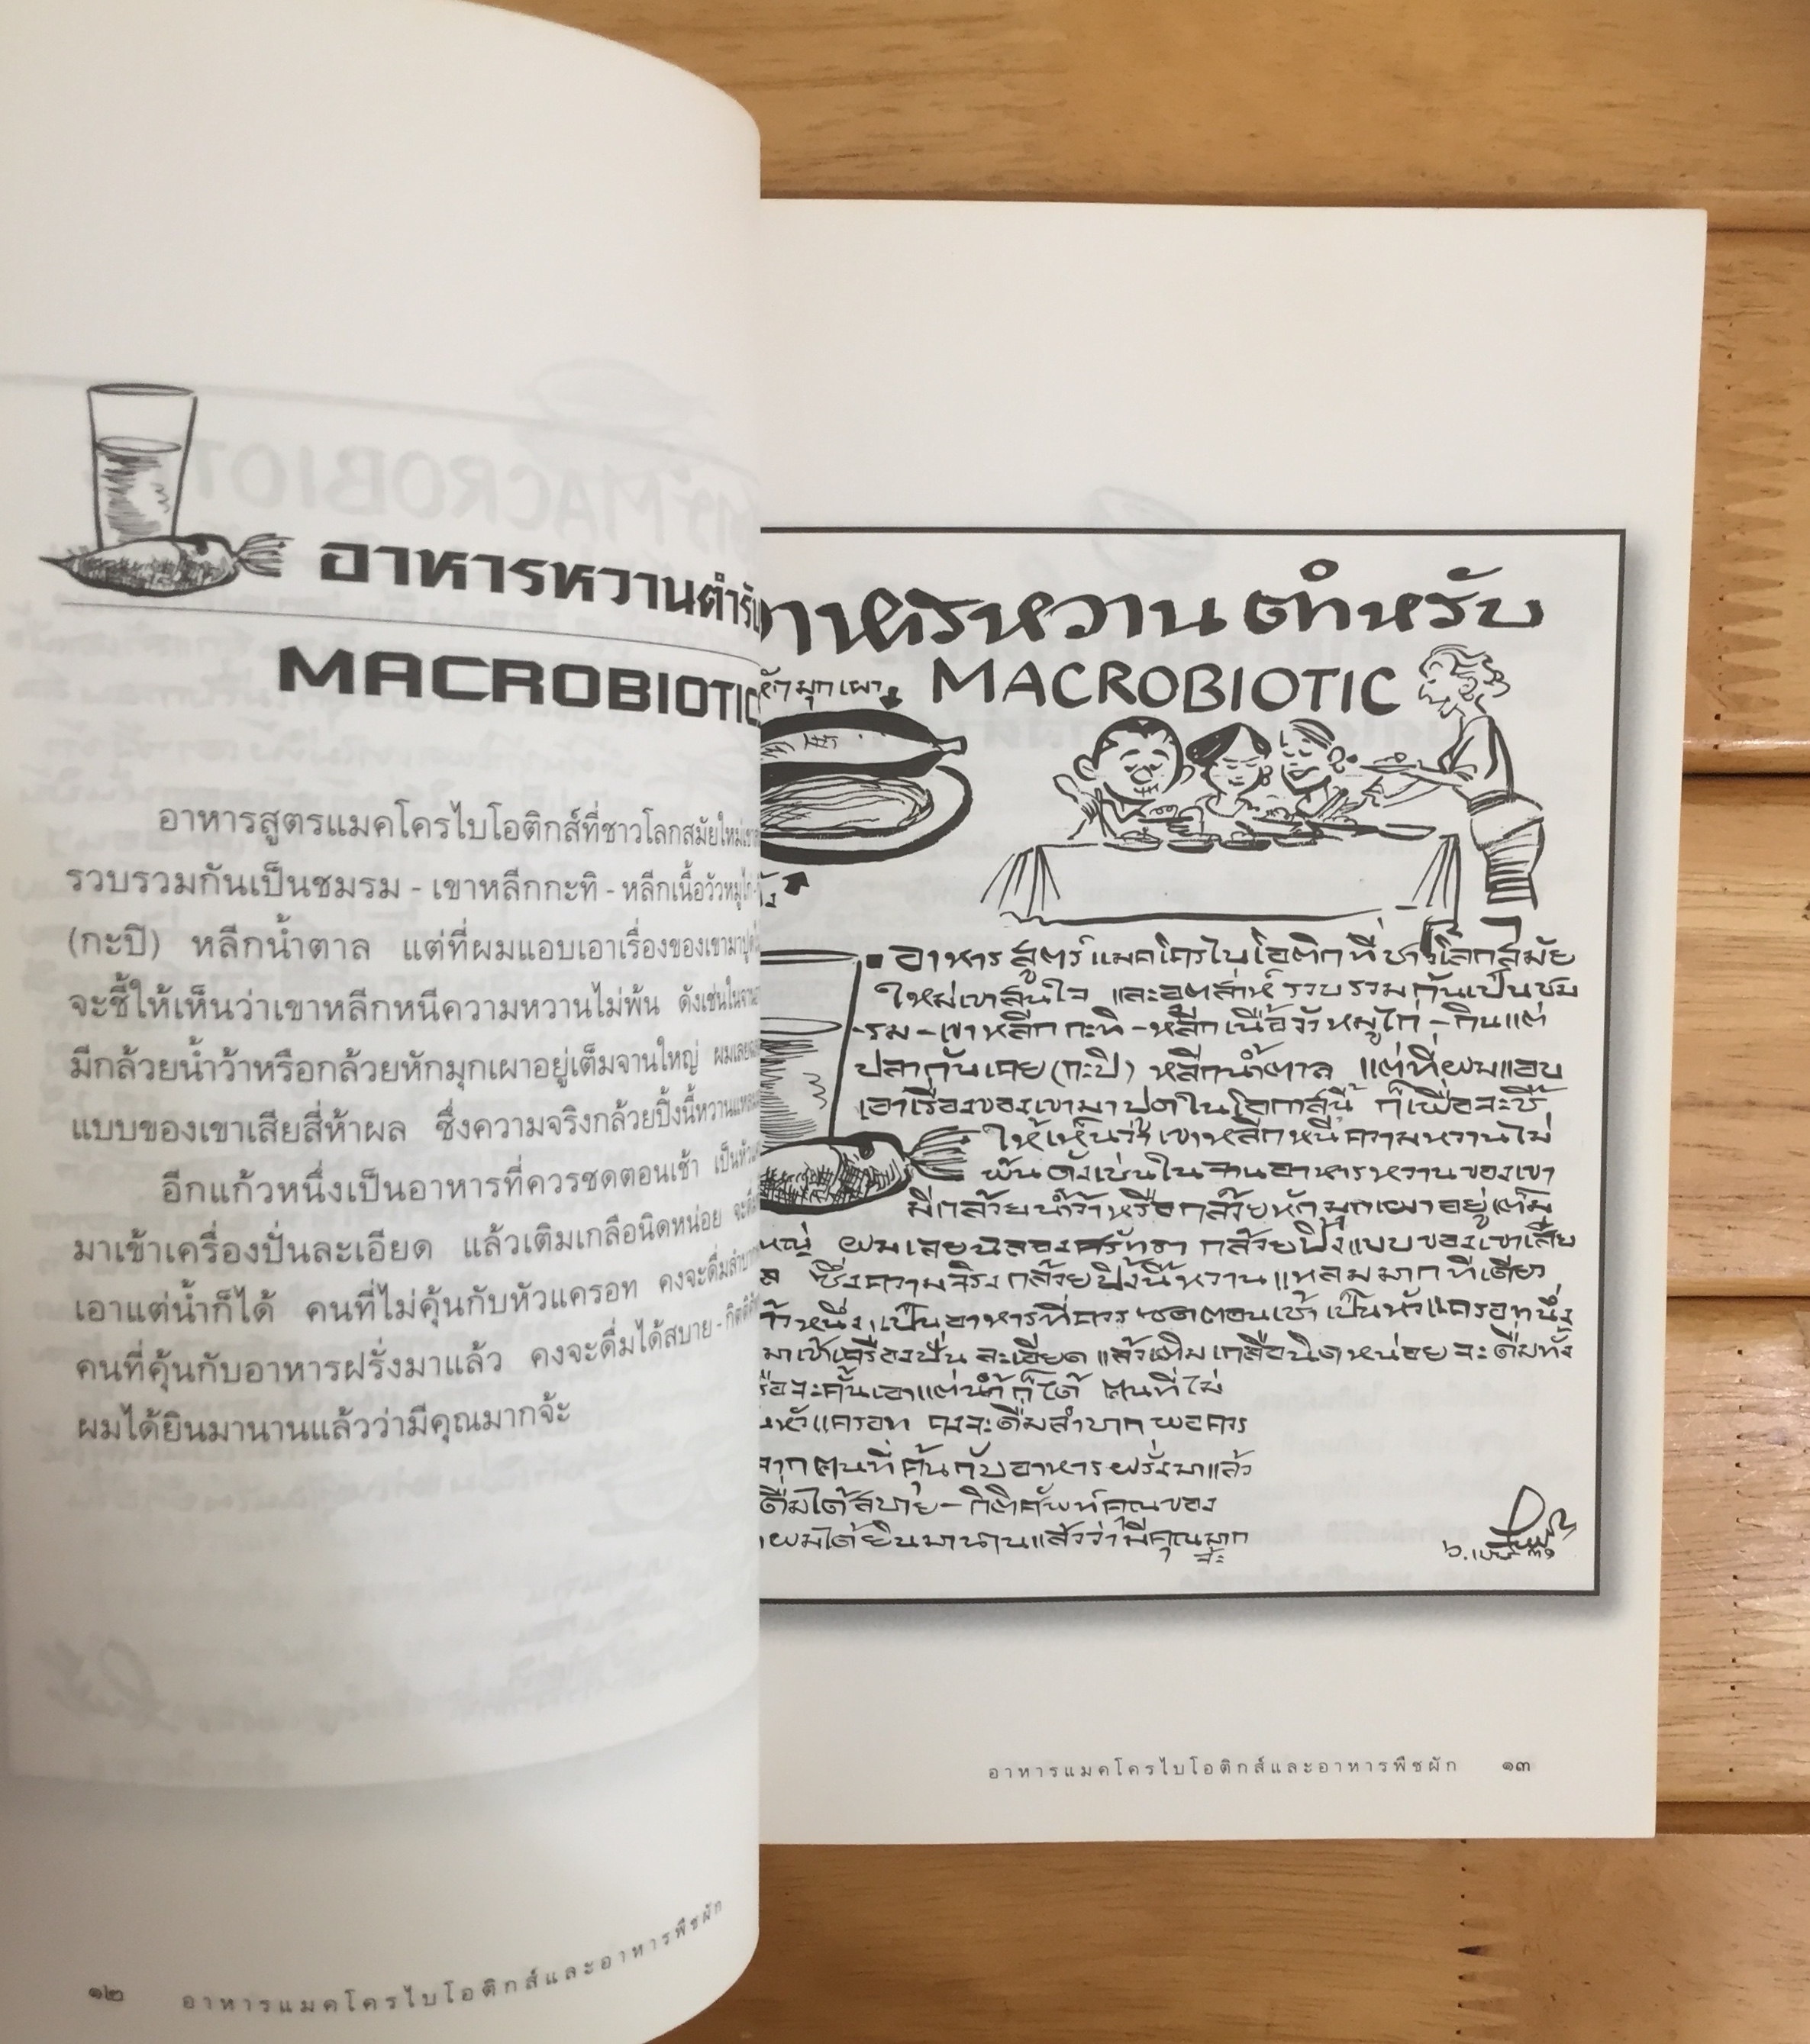 อาหารหวานตำรับ
MACROBIOTIC
อาหารสูตรแมคโครไบโอติกส์ที่ชาวโลกสมัยใหม่เขา
รวบรวมกันเป็นชมรม - เขาหลีกกะทิ - หลีกเนื้อวัวหมูไก่
(กะปิ) หลีกน้ำตาล แต่ที่ผมแอบเอาเรื่องของเขามาปูด
จะชี้ให้เห็นว่าเขาหลีกหนีความหวานไม่พ้น ดังเช่นในจาน
มีกล้วยน้ำว้าหรือกล้วยหักมุกเผาอยู่เต็มจานใหญ่ ผมเลย
แบบของเขาเสียสี่ห้าผล ซึ่งความจริงกล้วยปิ้งนี้หวานแหลม
อีกแก้วหนึ่งเป็นอาหารที่ควรซดตอนเช้า เป็นหัว
มาเข้าเครื่องปั่นละเอียด แล้วเติมเกลือนิดหน่อย จะดื่ม
เอาแต่น้ำก็ได้ คนที่ไม่คุ้นกับหัวแครอท คงจะดื่มลำบาก
คนที่คุ้นกับอาหารฝรั่งมาแล้ว คงจะดื่มได้สบาย - กิตติศัพ
ผมได้ยินมานานแล้วว่ามีคุณมากจ้ะ
๑๒ อาหารแมคโครไบโอติกส์และอาหารพืชผัก
าหารหวานตำหรับ
MACROBIOTIC
หักมุกเผา
อาหารสูตร์แมคโครไบโอติกที่ชาวโลกสมัย
ใหม่เขาสนใจ และอุตส่าห์รวบรวมกันเป็นชม
-รม - เขาหลีกกะทิ - หลีกเนื้อวัวหมูไก่ - กินแต่
ปลากับเคย (กะปิ) หลีกน้ำตาล แต่ที่ผมแอบ
เอาเรื่องของเขามาปูดในโอกาสนี้ ก็เพื่อจะชี้
ให้เห็นว่าเขาหลีกหนีความหวานไม่
พ้นดังเช่นในจานอาหารหวานของเขา
มีกล้วยน้ำว้าหรือกล้วยหักมุกเผาอยู่เต็ม
หญ่ ผมเลยฉลองศรัทธา กล้วยปิ้งแบบของเขาเสีย
ล ซึ่งความจริงกล้วยปิ้งนี้หวานแหลมมากทีเดียว
ก้วหนึ่งเป็นอาหารที่ควรซดตอนเช้า เป็นหัวแครอทนึ่ง
มาเข้าเครื่องปั่นละเอียด แล้วเติมเกลือนิดหน่อย จะดื่มทั้ง
รือจะคั้นเอาแต่น้ำก็ได้ คนที่ไม่
หัวแครอท คงจะดื่มลำบากพอควร
จากคนที่คุ้นกับอาหารฝรั่งมาแล้ว
ดื่มได้สบาย - กิติศัพท์คุณของ
ผมได้ยินมานานแล้วว่ามีคุณมาก
จ้ะ
อาหารแมคโครไบโอติกส์และอาหารพืชผัก ๑๓